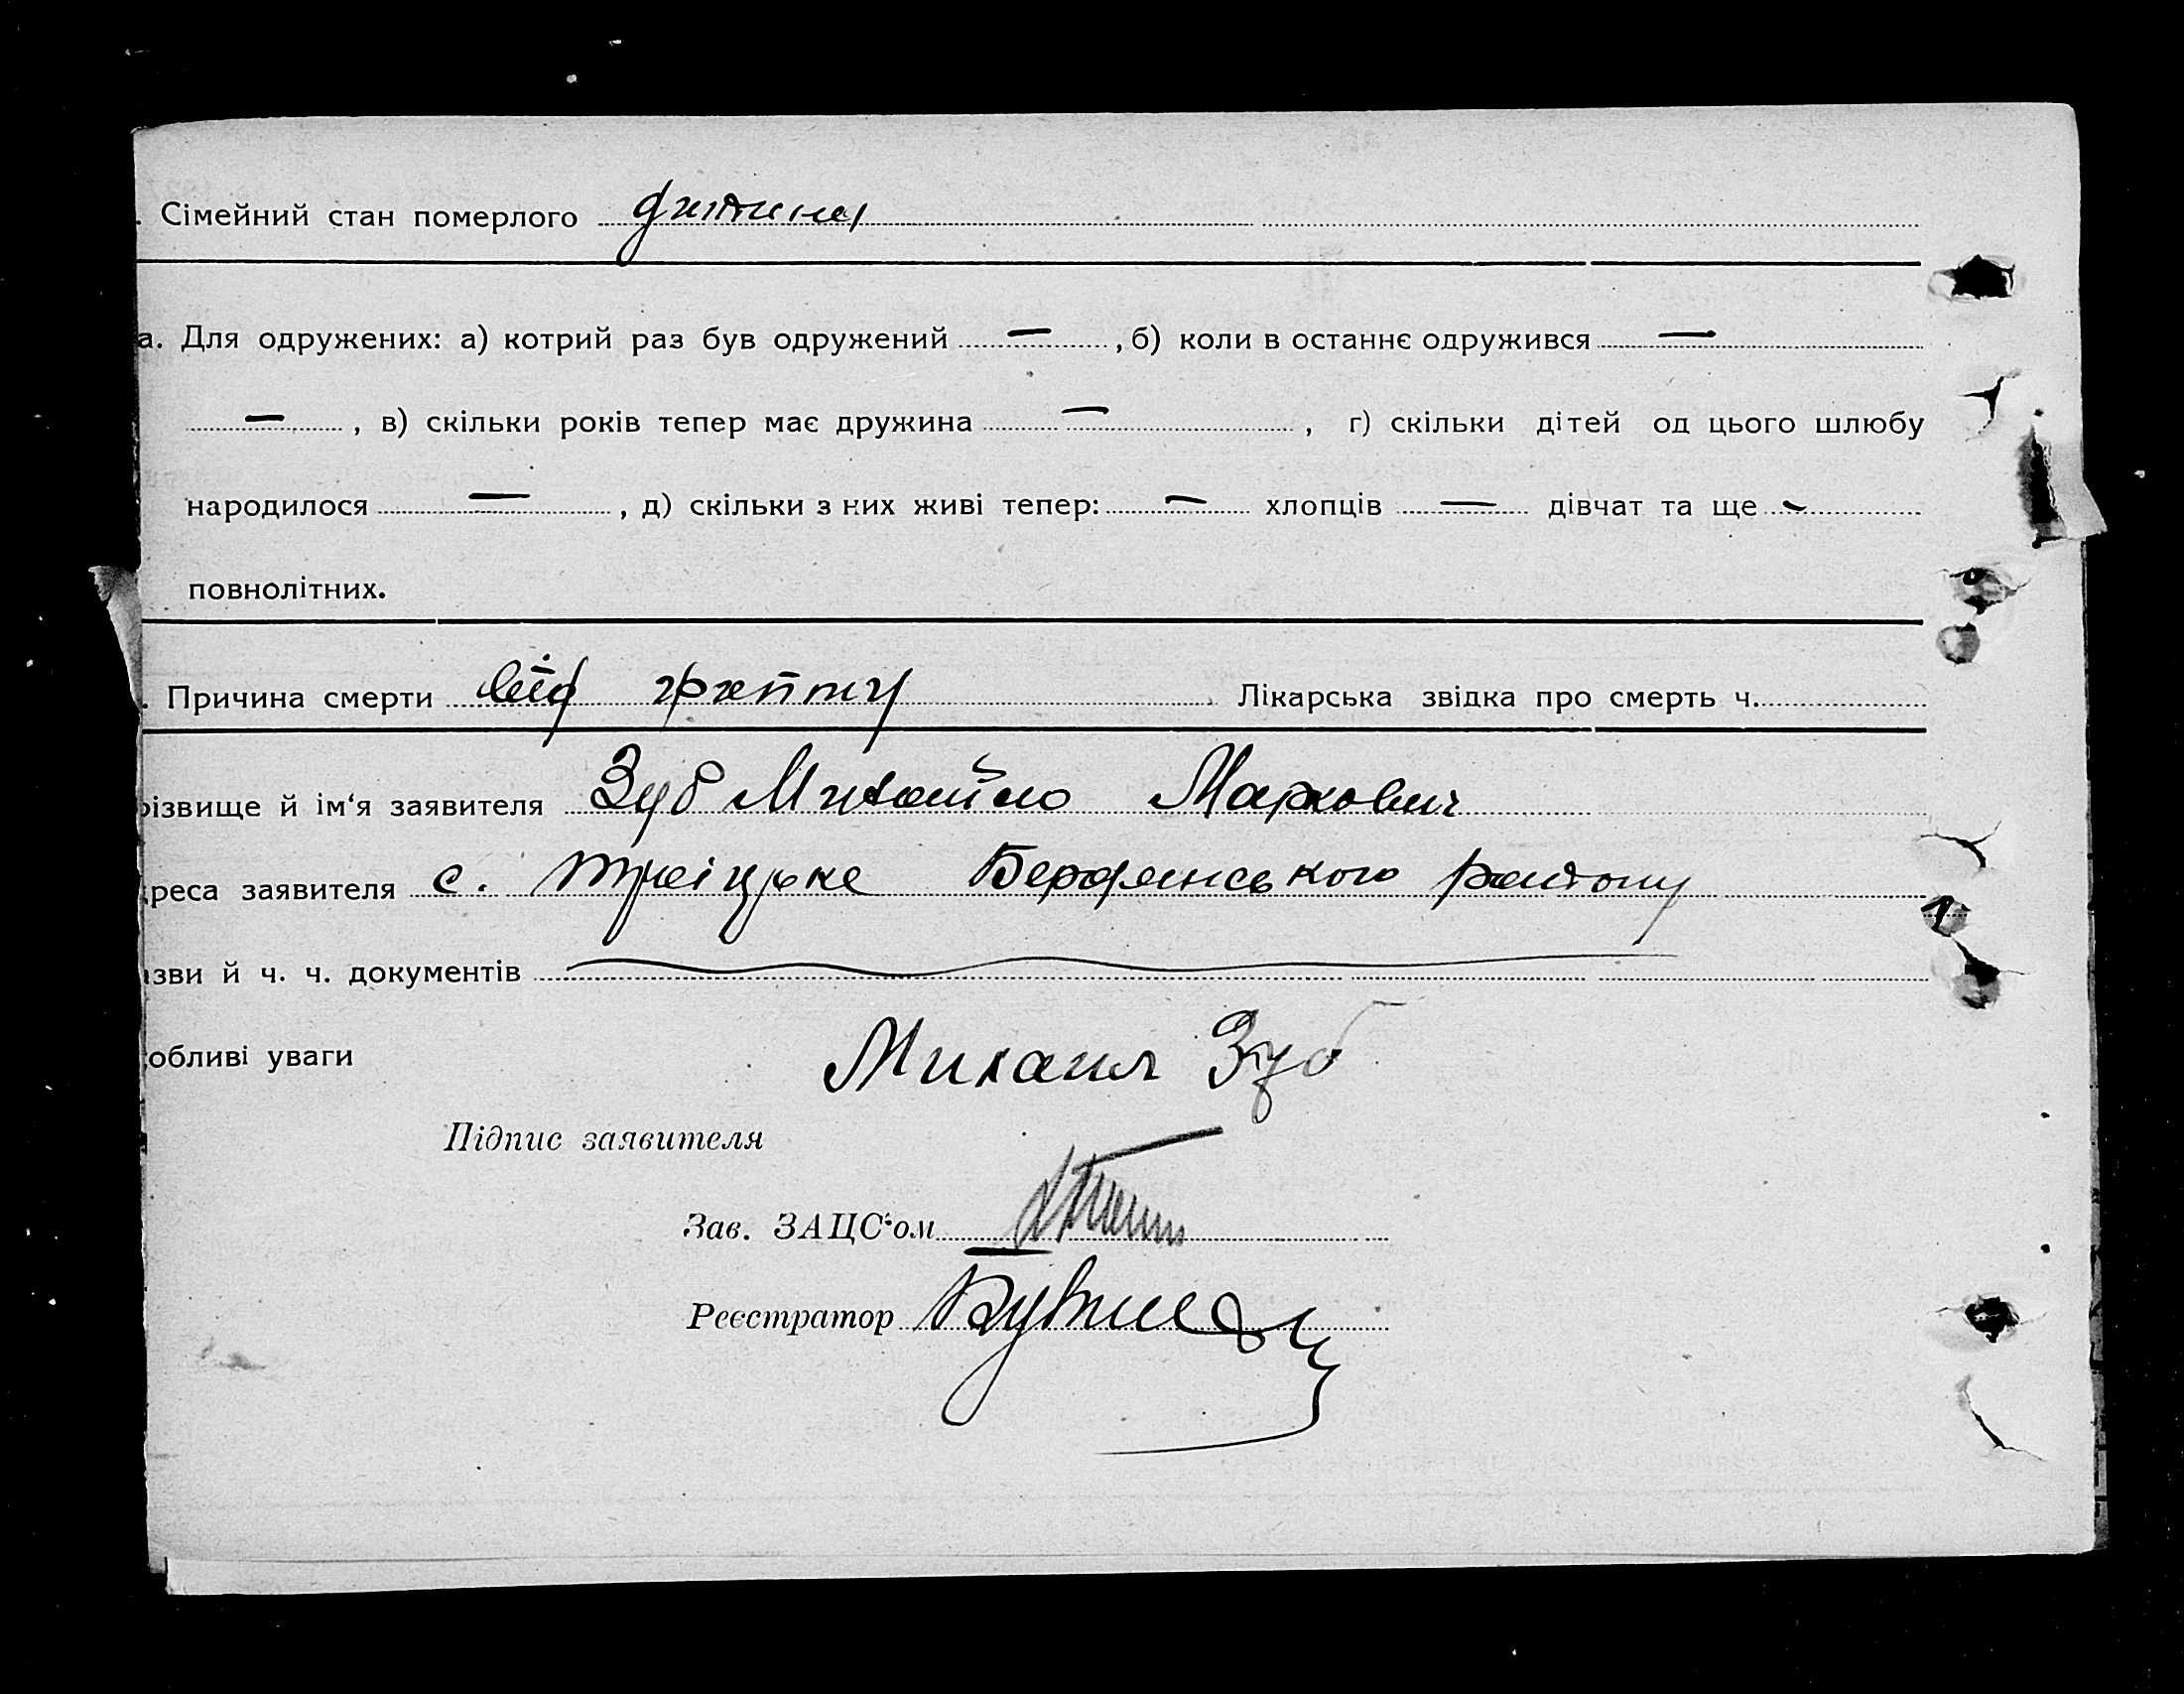 . Сімейний стан померлого дитина
а. Для одружених: а) котрий раз був одружений — , б) коли в останнє одружився —
— , в) скільки років тепер має дружина — , г) скільки дітей од цього шлюбу
народилося — , д) скільки з них живі тепер: — хлопців — дівчат та ще —
повнолітних.
. Причина смерти від грипу Лікарська звідка про смерть ч.
різвище й ім‘я заявителя Зуб Михайло Маркович
дреса заявителя с. Троіцьке Бердянського району
азви й ч. ч. документів
обливі уваги
Михаил Зуб
Підпис заявителя
Зав. ЗАЦС‘ом
Реєстратор